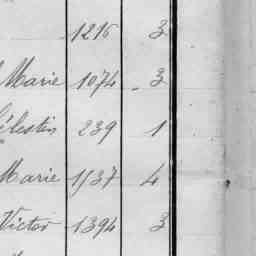 1216 3
Marie 1074 3
Célestin 239 1
Marie 1537 4
Victor 1394 3